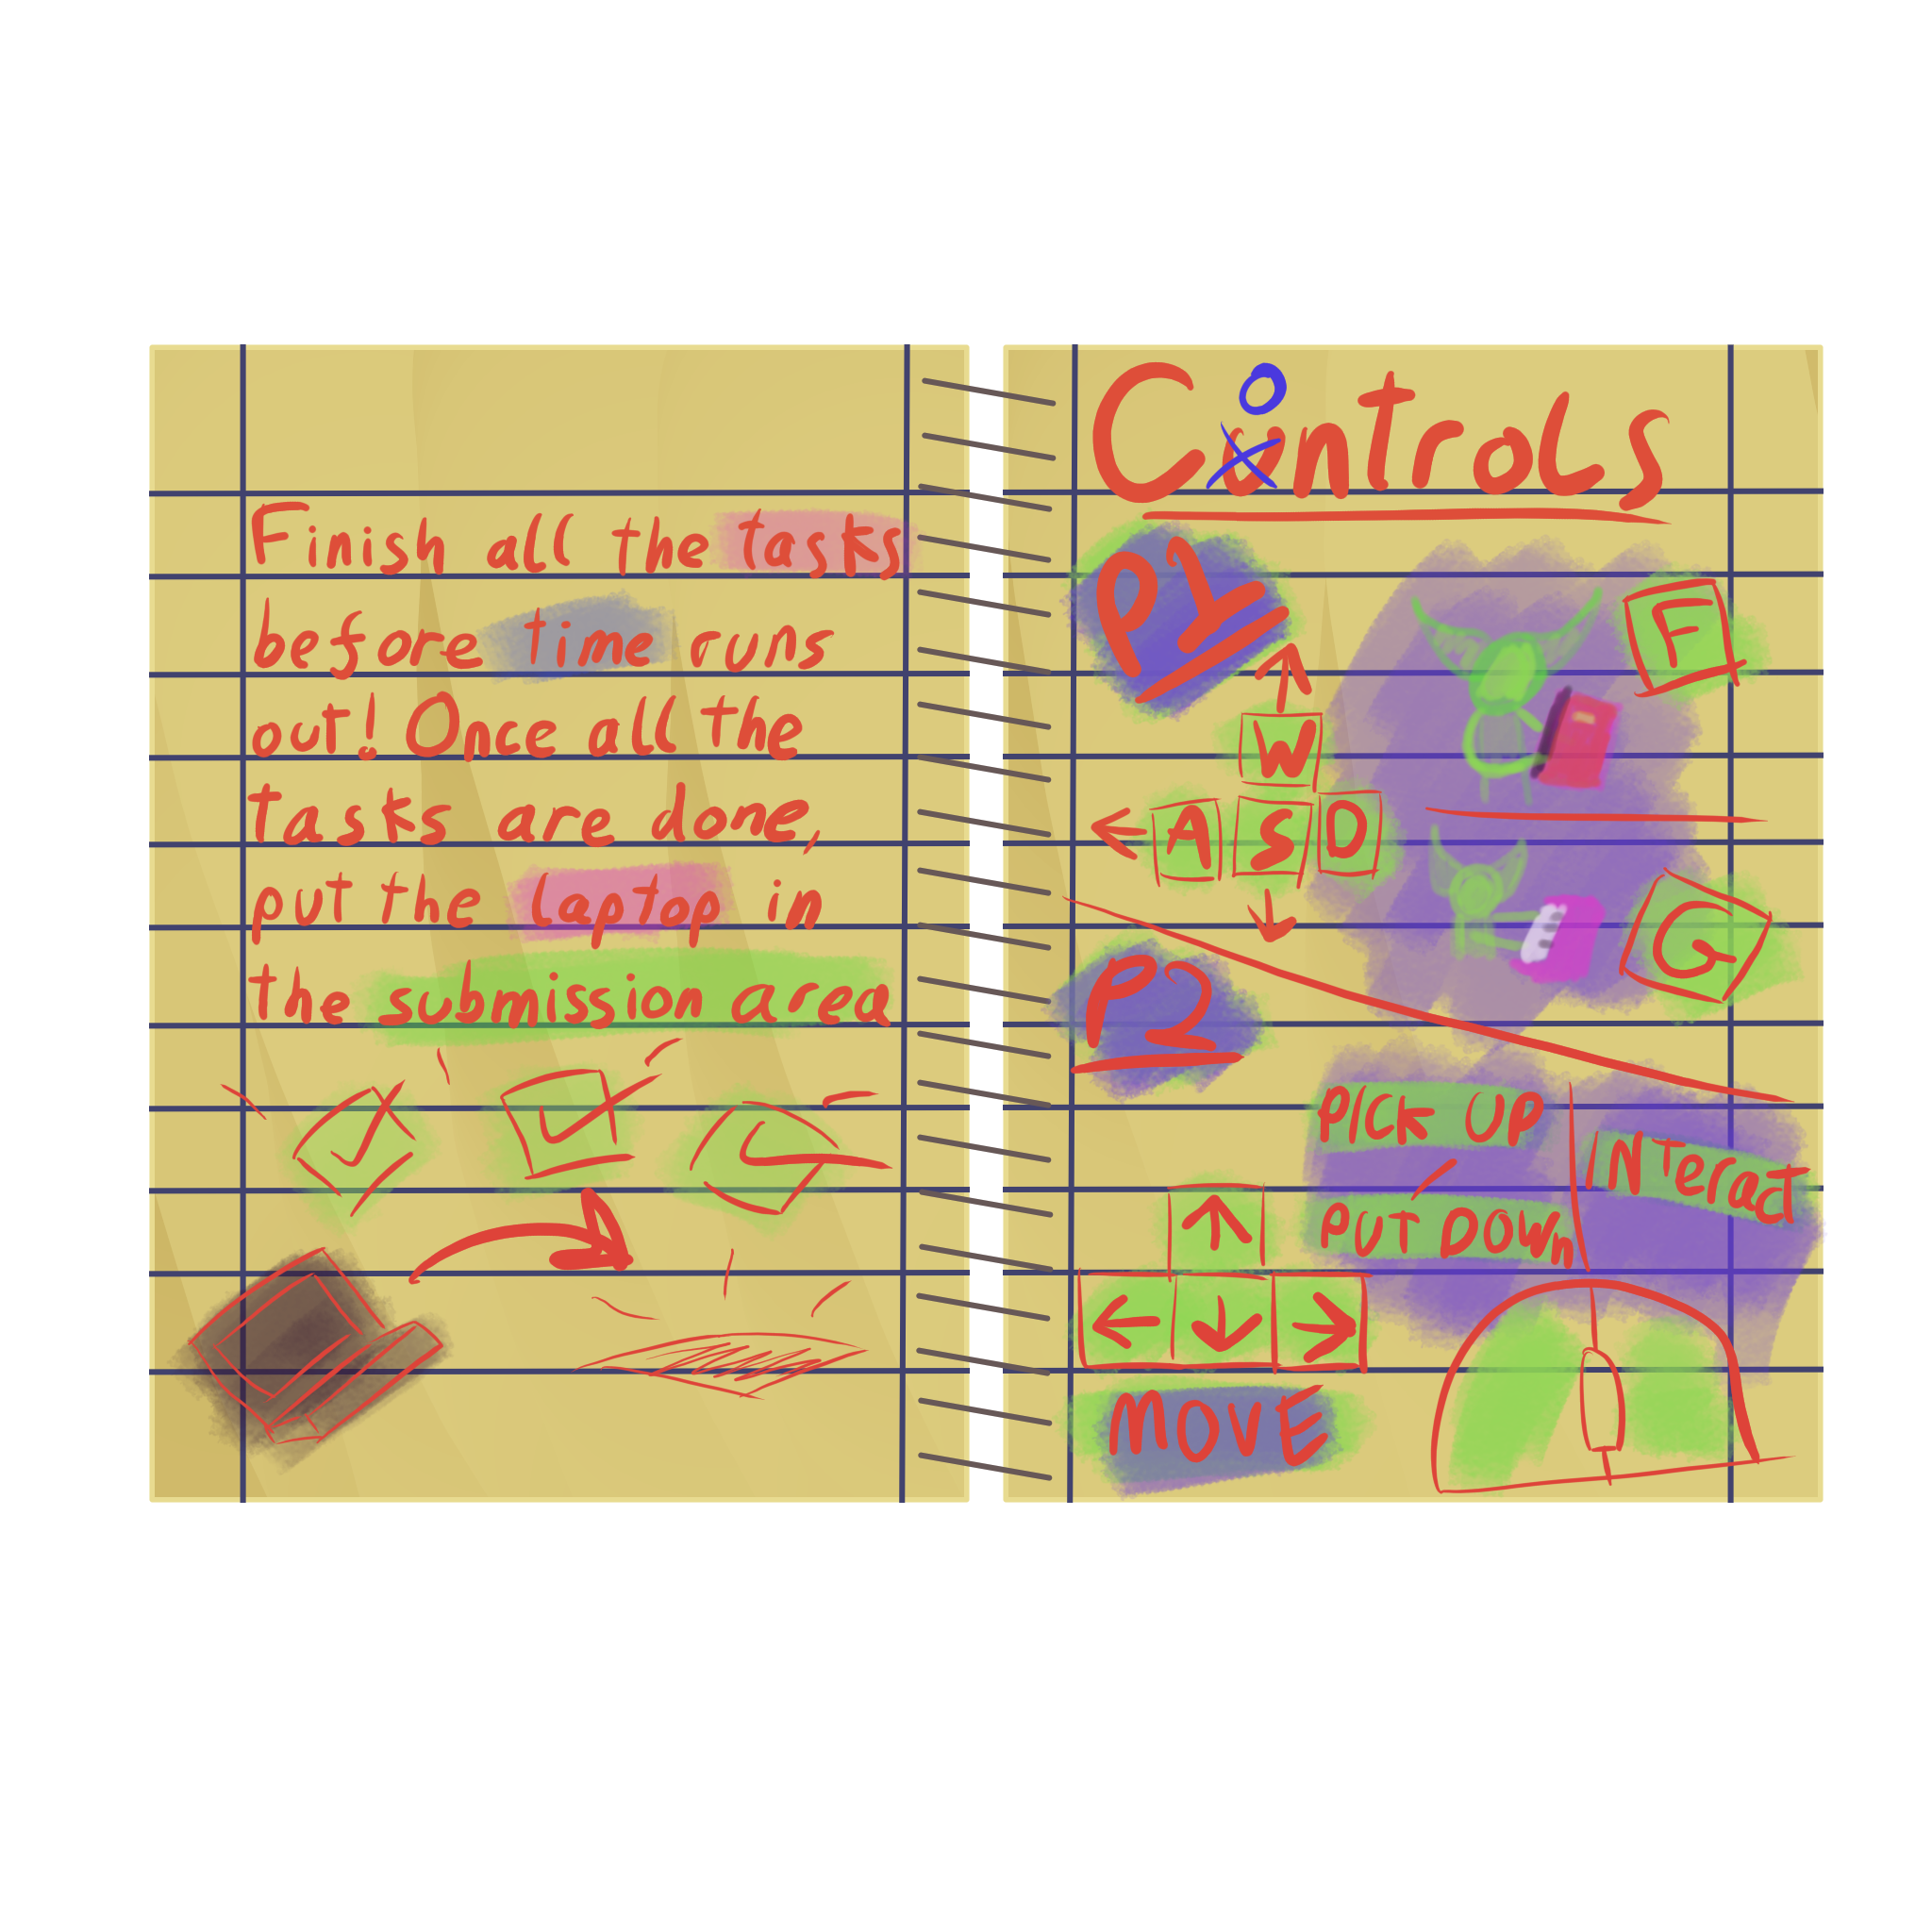 Finish all the tasks
before time runs
out! Once all the
tasks are done,
put the laptop in
the submission area
Controls
P1
F
W
A S D
G
P2
PICK UP
/
PUT DOWn
INTeract
↑
← ↓ →
MOVE